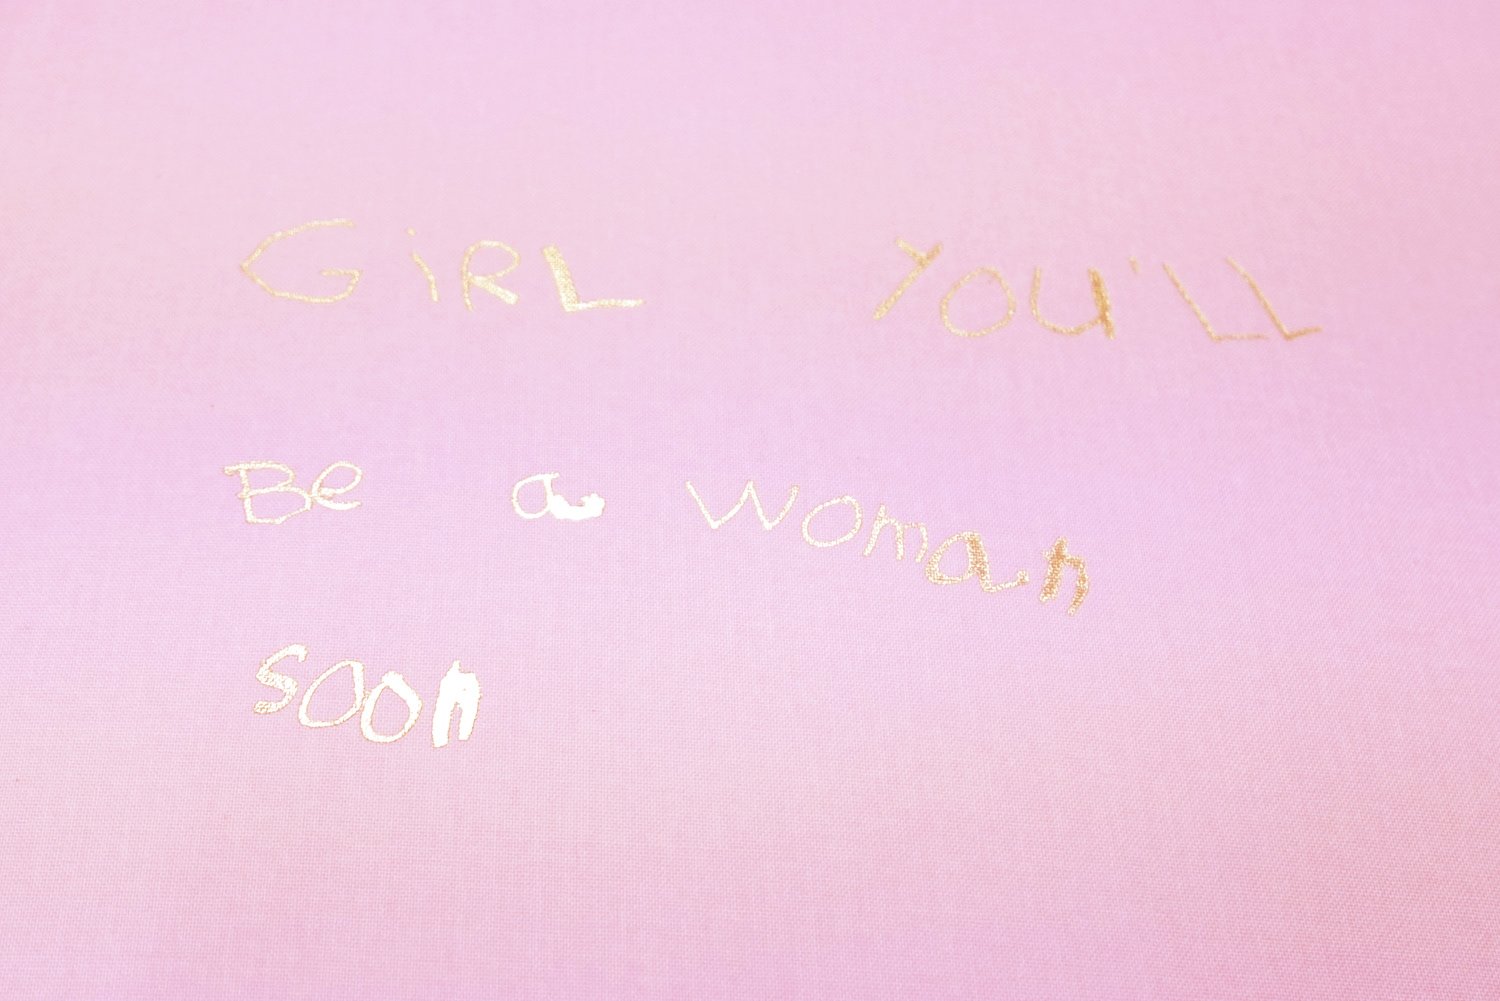 GiRL YOU'LL
Be a woman
soon